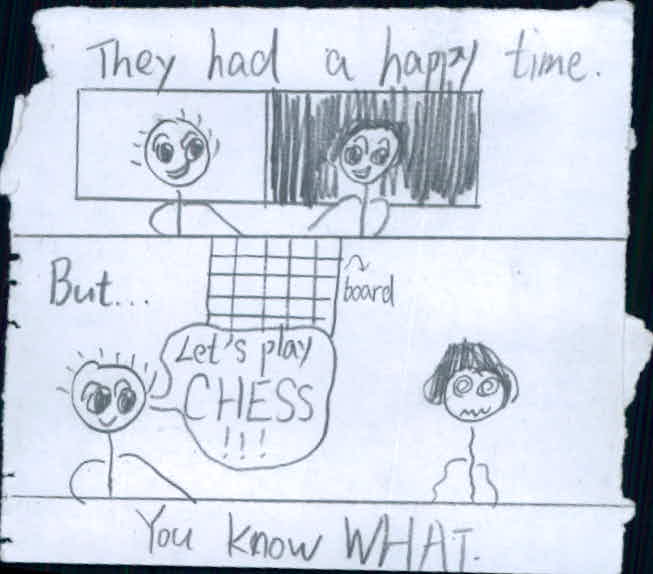 They had a happy time.
But...
board
Let's play
CHESS
!!!
You know WHAT.